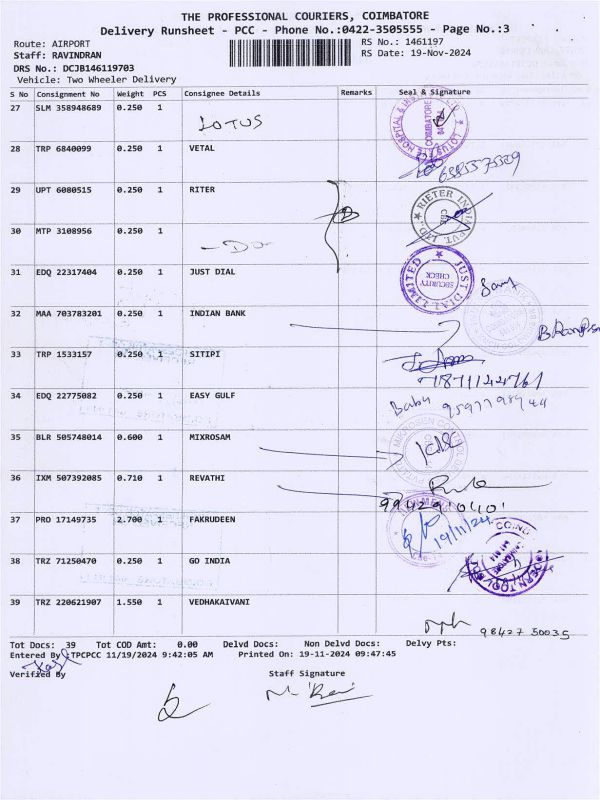 THE PROFESSIONAL COURIERS, COIMBATORE
Delivery Runsheet - PCC - Phone No.:0422-3505555 - Page No.:3
Route: AIRPORT RS No.: 1461197
Staff: RAVINDRAN RS Date: 19-Nov-2024
DRS No.: DCJB146119703
Vehicle: Two Wheeler Delivery
S No Consignment No Weight PCS Consignee Details Remarks Seal & Signature
27 SLM 358948689 0.250 1 LOTUS
28 TRP 6840099 0.250 1 VETAL
29 UPT 6080515 0.250 1 RITER RIETER INDIA PVT. LTD.
30 MTP 3108956 0.250 1 -Do-
31 EDQ 22317404 0.250 1 JUST DIAL JUST DIAL LIMITED SECURITY CHECK
32 MAA 703783201 0.250 1 INDIAN BANK
33 TRP 1533157 0.250 1 SITIPI
34 EDQ 22775082 0.250 1 EASY GULF Babu
35 BLR 505748014 0.600 1 MIXROSAM
36 IXM 507392085 0.710 1 REVATHI
37 PRO 17149735 2.700 1 FAKRUDEEN 19/11/24
38 TRZ 71250470 0.250 1 GO INDIA
39 TRZ 220621907 1.550 1 VEDHAKAIVANI
98427 30035
Tot Docs: 39 Tot COD Amt: 0.00 Delvd Docs: Non Delvd Docs: Delvy Pts:
Entered By :TPCPCC 11/19/2024 9:42:05 AM Printed On: 19-11-2024 09:47:45
Verified By Staff Signature